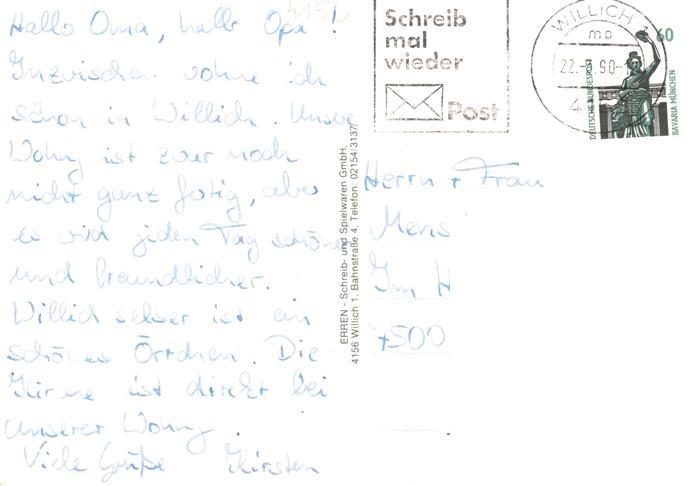 Hallo Oma, hallo Opa!
Inzwischen wohne ich
schon in Willich. Unsere
Wohng ist zwar noch
nicht ganz fertig, aber
es wird jeden Tag schöner
und freundlicher.
Willich selber ist ein
schönes Örtchen. Die
Kirche ist direkt bei
unserer Wohng.
Viele Grüße Kirsten
4156
ERREN - Schreib- und Spielwaren GmbH,
4156 Willich 1, Bahnstraße 4, Telefon: 02154/3137
Schreib
mal
wieder
Post
WILLICH 1
mp
22.-90-
4
60
DEUTSCHE BUNDESPOST
BAVARIA MÜNCHEN
Herrn + Frau
Mens
Im H
7500